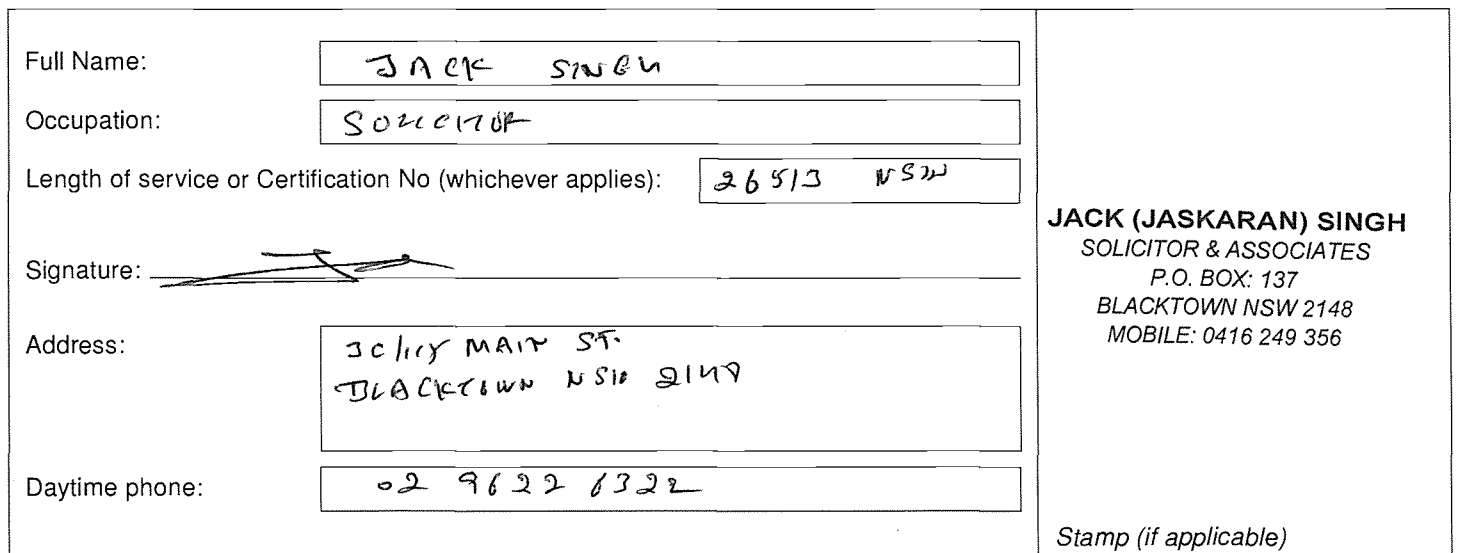 Full Name: JACK SINGH
Occupation: SOLICITOR
Length of service or Certification No (whichever applies): 26513 NSW
Signature:
Address: MAIN ST.
BLACKTOWN NSW 2148
Daytime phone: 02 9622 6322
JACK (JASKARAN) SINGH
SOLICITOR & ASSOCIATES
P.O. BOX: 137
BLACKTOWN NSW 2148
MOBILE: 0416 249 356
Stamp (if applicable)